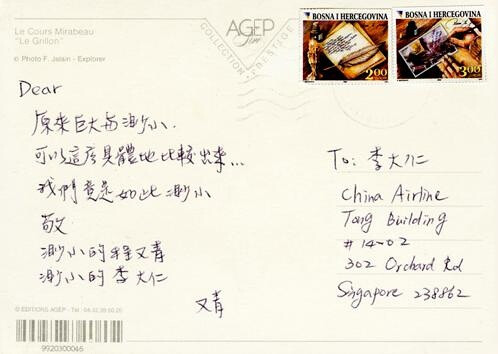 Le Cours Mirabeau
"Le Grillon"
© Photo F. Jalain - Explorer
AGEP
COLLECTION PRESTIGE
BOSNA I HERCEGOVINA
2.00
BOSNA I HERCEGOVINA
3.00
Dear
原來巨大與渺小.
可以這麼具體地比較出來...
我們竟是如此渺小
敬
渺小的程又青
渺小的李大仁
又青
To: 李大仁
China Airline
Tong Building
#14-02
302 Orchard Rd
Singapore 238862
© EDITIONS AGEP - Tel : 04.32.39.50.20
9920300046